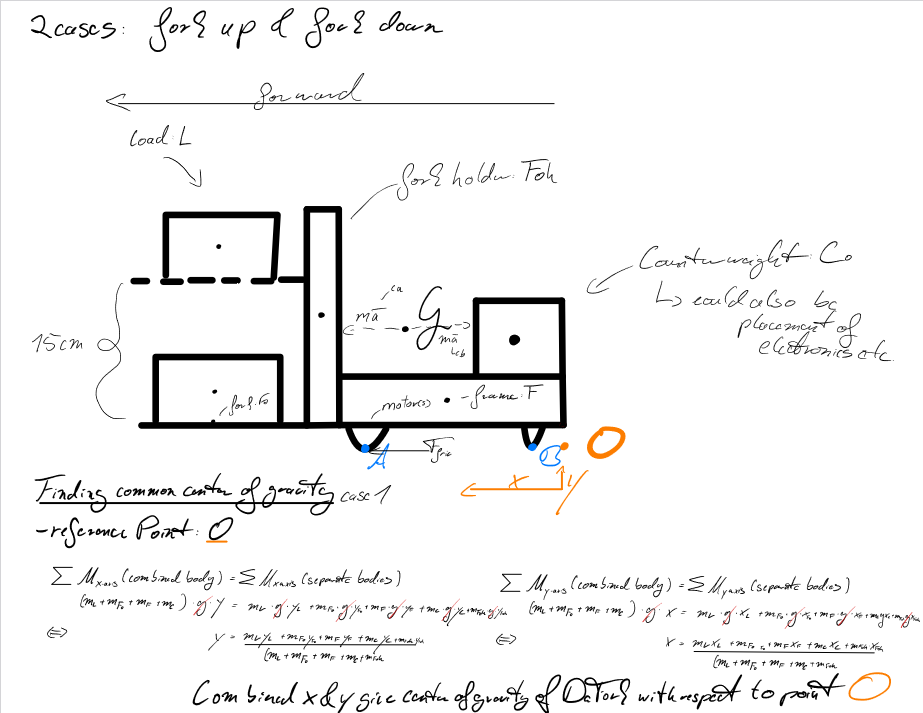 2 cases: fork up & fork down
forward
Load: L
fork holder: Foh
Counterweight: Co
↳ could also be
placement of
electronics etc.
15cm
mā
ca
G
mā
cb
fork: Fo
motor(s)
frame: F
A
B
O
x
y
Finding common center of gravity case 1
- reference Point: O
∑ Mx-axis (combined body) = ∑ Mx-axis (separate bodies)
(mL + mFo + mF + mc) · g · y = mL · g · yL + mFo · g · yFo + mF · g · yF + mc · g yc + mFoh g yFoh
⇔ y = mL yL + mFo yFo + mF yF + mc yc + mFoh yFoh
(mL + mFo + mF + mc + mFoh
∑ My-axis (combined body) = ∑ My-axis (separate bodies)
(mL + mFo + mF + mc) · g · x = mL · g · xL + mFo · g · xFo + mF · g · xF + mc g xc + mFoh g xFoh
⇔ x = mL xL + mFo xFo + mF xF + mc xc + mFoh xFoh
(mL + mFo + mF + mc + mFoh
Combined x & y give center of gravity of with respect to point O